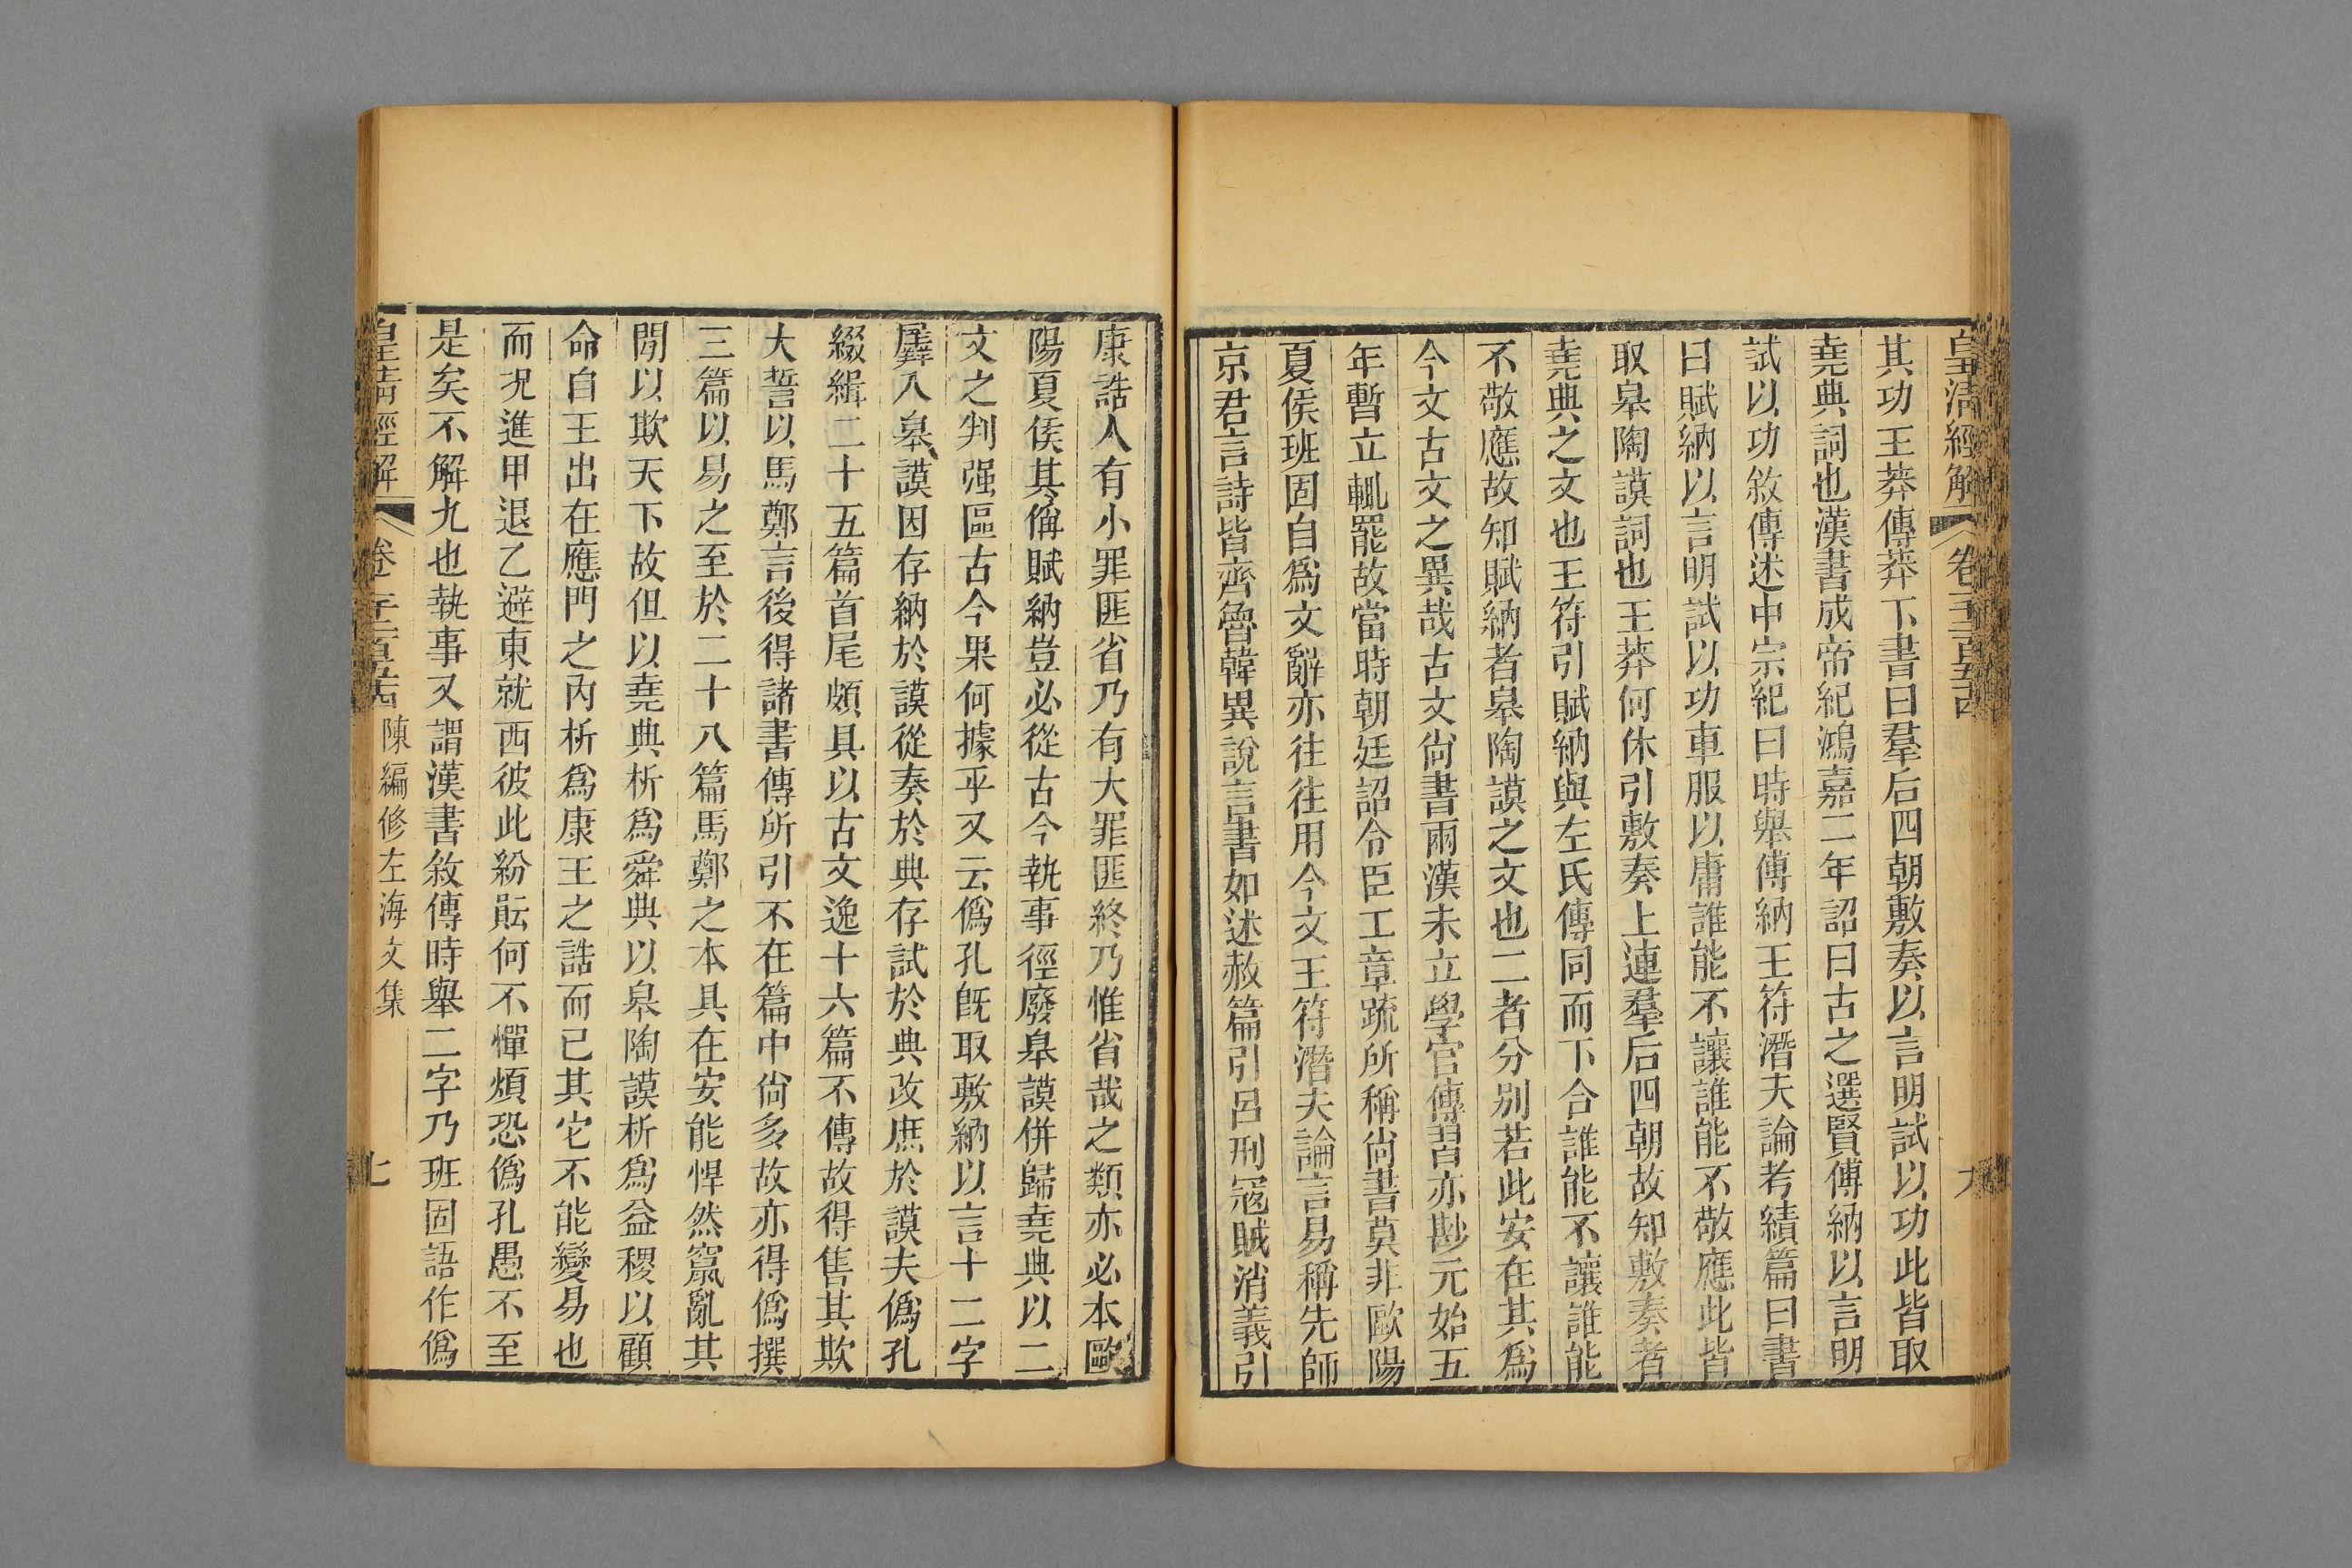 皇清經解 卷一千二百五十四
其功王莽傳莽下書曰羣后四朝敷奏以言明試以功此皆取
堯典詞也漢書成帝紀鴻嘉二年詔曰古之選賢傅納以言明
試以功敘傳述中宗紀曰時舉傅納王符潛夫論考績篇曰書
曰賦納以言明試以功車服以庸誰能不讓誰能不敬應此皆
取皋陶謨詞也王莽何休引敷奏上連羣后四朝故知敷奏者
堯典之文也王符引賦納與左氏傳同而下合誰能不讓誰能
不敬應故知賦納者皋陶謨之文也二者分别若此安在其爲
今文古文之異哉古文尙書兩漢未立學官傳習亦尠元始五
年暫立輒罷故當時朝廷詔令臣工章疏所稱尙書莫非歐陽
夏侯班固自爲文辭亦往往用今文王符潛夫論言易稱先師
京君言詩皆齊魯韓異說言書如述赦篇引呂刑寇賊消義引
康誥人有小罪匪省乃有大罪匪終乃惟省哉之類亦必本歐
陽夏侯其偁賦納豈必從古今執事徑廢皋謨併歸堯典以二
文之判强區古今果何據乎又云僞孔旣取敷納以言十二字
羼入皋謨因存納於謨從奏於典存試於典改庶於謨夫僞孔
綴緝二十五篇首尾頗具以古文逸十六篇不傳故得售其欺
大誓以馬鄭言後得諸書傳所引不在篇中尙多故亦得僞撰
三篇以易之至於二十八篇馬鄭之本具在安能悍然竄亂其
閒以欺天下故但以堯典析爲舜典以皋陶謨析爲益稷以顧
命自王出在應門之內析爲康王之誥而已其它不能變易也
而况進甲退乙避東就西彼此紛䢵何不憚煩恐僞孔愚不至
是矣不解九也執事又謂漢書敘傳時舉二字乃班固語作僞
皇清經解 卷一千二百五十四 陳編修左海文集 七